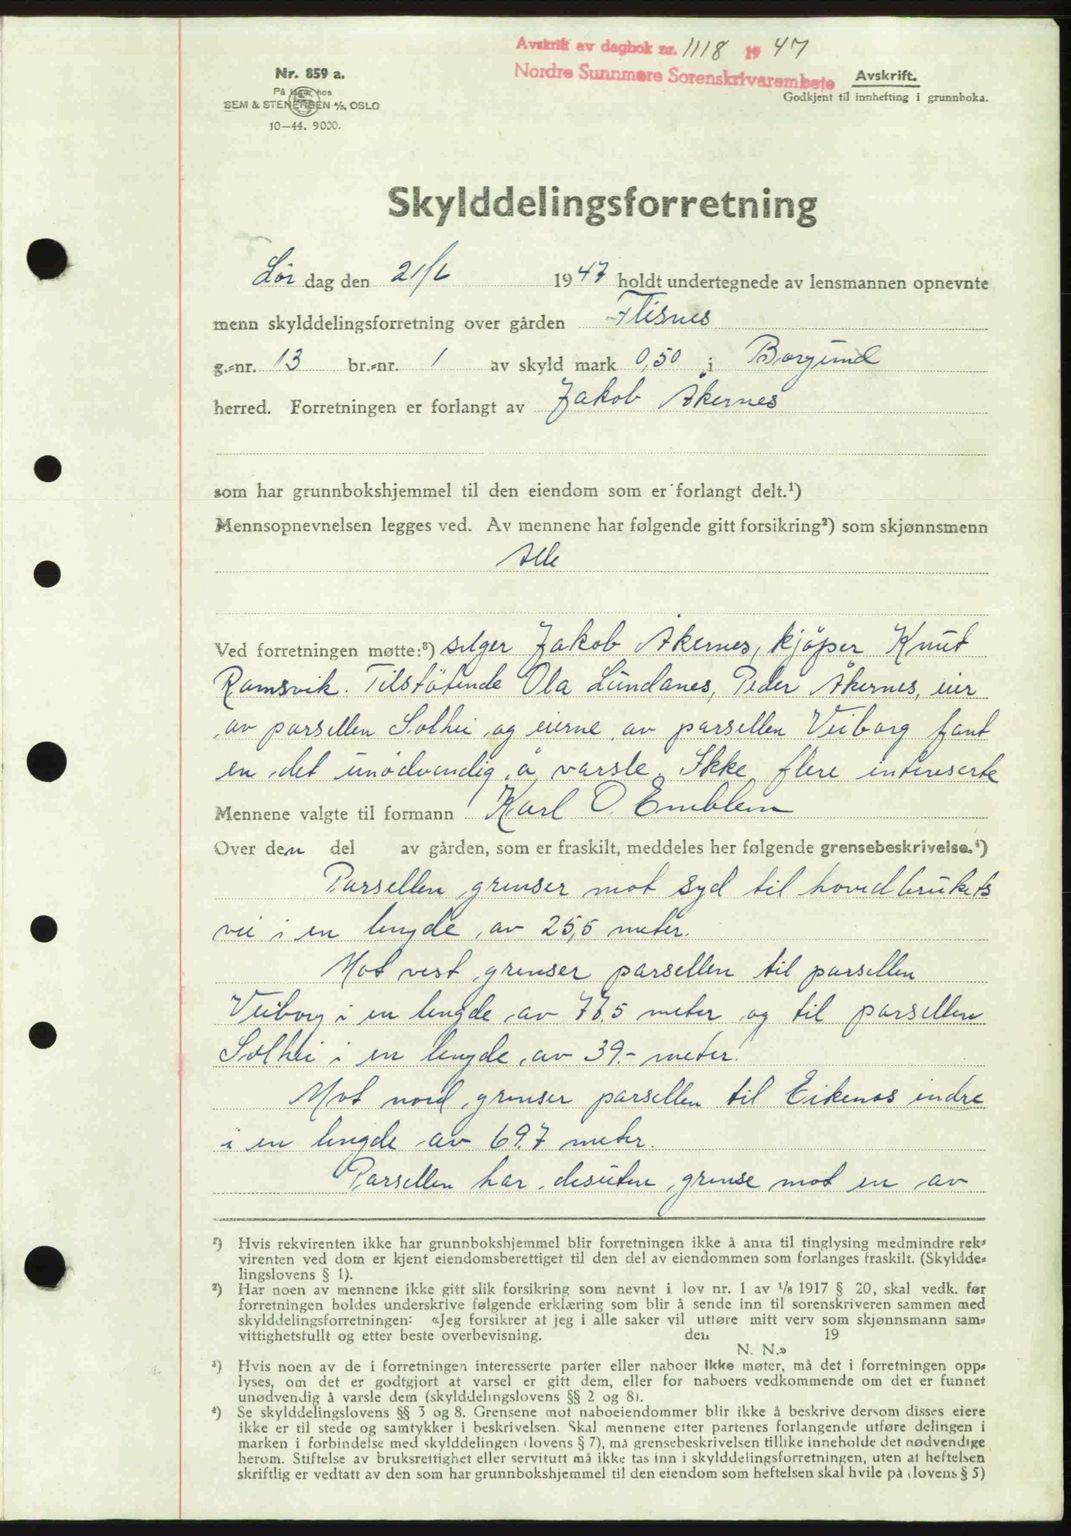 Avskrift av dagbok nr. 1118 1947
Nordre Sunnmøre Sorenskriverembete
Nr. 859 a.
På lager hos
SEM & STENERSEN A/S, OSLO
10—44. 9000.
Avskrift.
Godkjent til innhefting i grunnboka.
Skylddelingsforretning
Lør dag den 21/6 1947 holdt undertegnede av lensmannen opnevnte
menn skylddelingsforretning over gården Flisnes
g.-nr. 13 br.-nr. 1 av skyld mark 0,50 i Borgund
herred. Forretningen er forlangt av Jakob Åkernes
som har grunnbokshjemmel til den eiendom som er forlangt delt.¹)
Mennsopnevnelsen legges ved. Av mennene har følgende gitt forsikring²) som skjønnsmenn
Alle
Ved forretningen møtte:³) selger Jakob Åkernes, kjøper Knut
Ramsvik. Tilstøtende Ola Lundanes, Peder Åkernes, eier
av parsellen Solhei og eierne av parsellen Veiborg fant
en det unødvendig å varsle. Ikke flere intereserte
Mennene valgte til formann Karl O. Emblem
Over den del av gården, som er fraskilt, meddeles her følgende grensebeskrivelse.⁴)
Parsellen grenser mot syd til hovedbrukets
vei i en lengde av 25,5 meter.
Mot vest grenser parsellen til parsellen
Veiborg i en lengde av 77.5 meter og til parsellen
Solhei i en lengde av 39.- meter.
Mot nord grenser parsellen til Eikenos indre
i en lengde av 69.7 meter.
Parsellen har desuten grense mot en av
¹) Hvis rekvirenten ikke har grunnbokshjemmel blir forretningen ikke å anta til tinglysing medmindre rek-
virenten ved dom er kjent eiendomsberettiget til den del av eiendommen som forlanges fraskilt. (Skyldde-
lingslovens § 1).
²) Har noen av mennene ikke gitt slik forsikring som nevnt i lov nr. 1 av 1/8 1917 § 20, skal vedk. før
forretningen holdes underskrive følgende erklæring som blir å sende inn til sorenskriveren sammen med
skylddelingsforretningen: «Jeg forsikrer at jeg i alle saker vil utføre mitt verv som skjønnsmann sam-
vittighetsfullt og etter beste overbevisning. den 19
N. N.»
³) Hvis noen av de i forretningen interesserte parter eller naboer ikke møter, må det i forretningen opp-
lyses, om det er godtgjort at varsel er gitt dem, eller for naboers vedkommende om det er funnet
unødvendig å varsle dem (skylddelingslovens §§ 2 og 8).
⁴) Se skylddelingslovens §§ 3 og 8. Grensene mot naboeiendommer blir ikke å beskrive dersom disses eiere
ikke er til stede og samtykker i beskrivelsen. Skal mennene etter partenes forlangende utføre delingen i
marken i forbindelse med skylddelingen (lovens § 7), må grensebeskrivelsen tillike inneholde det nødvendige
herom. Stiftelse av bruksrettighet eller servitutt må ikke tas inn i skylddelingsforretningen, uten at heftelsen
skriftlig er vedtatt av den som har grunnbokshjemmel til den eiendom som heftelsen skal hvile på (lovens § 5)